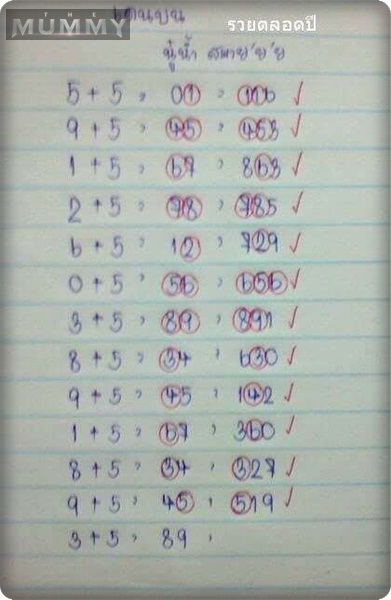 THE
MUMMY
รวยตลอดปี
5 + 5 , 01 , 116 ✓
9 + 5 , 45 , 453 ✓
1 + 5 , 67 , 863 ✓
2 + 5 , 78 , 785 ✓
6 + 5 , 12 , 729 ✓
0 + 5 , 56 , 656 ✓
3 + 5 , 89 , 891 ✓
8 + 5 , 34 , 630 ✓
9 + 5 , 45 , 142 ✓
1 + 5 , 67 , 360 ✓
8 + 5 , 34 , 327 ✓
9 + 5 , 45 , 519 ✓
3 + 5 , 89 ,